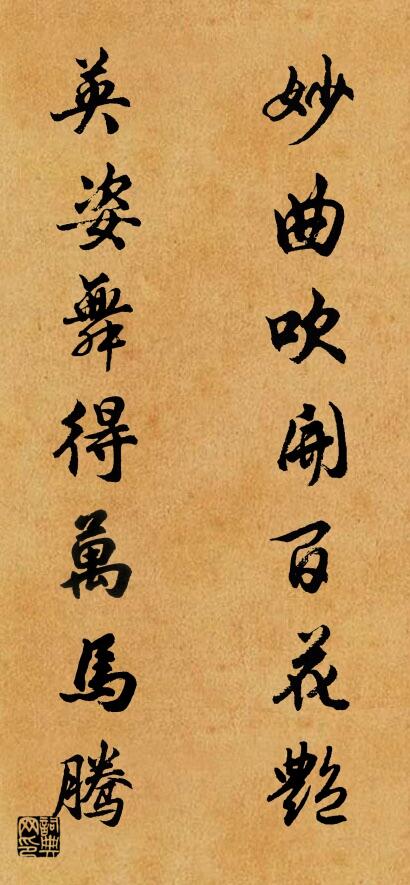 妙曲吹開百花艷
英姿舞得萬馬騰
詞典網印